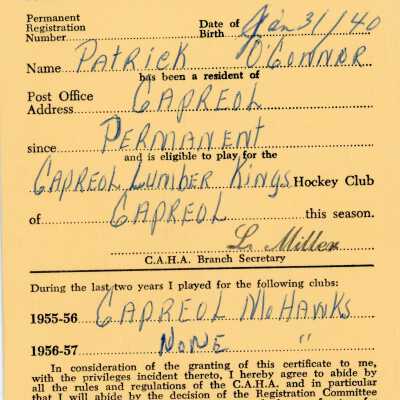 Permanent
Registration Date of
Number Birth Jan 31/40
Name PATRICK O'CONNOR
has been a resident of
Post Office
Address CAPREOL
since PERMANENT
and is eligible to play for the
CAPREOL LUMBER KINGS Hockey Club
of CAPREOL this season.
L. Miller
C.A.H.A. Branch Secretary
During the last two years I played for the following clubs:
1955-56 CAPREOL MOHAWKS
1956-57 NONE "
In consideration of the granting of this certificate to me,
with the privileges incident thereto, I hereby agree to abide by
all the rules and regulations of the C.A.H.A. and in particular
that I will abide by the decision of the Registration Committee